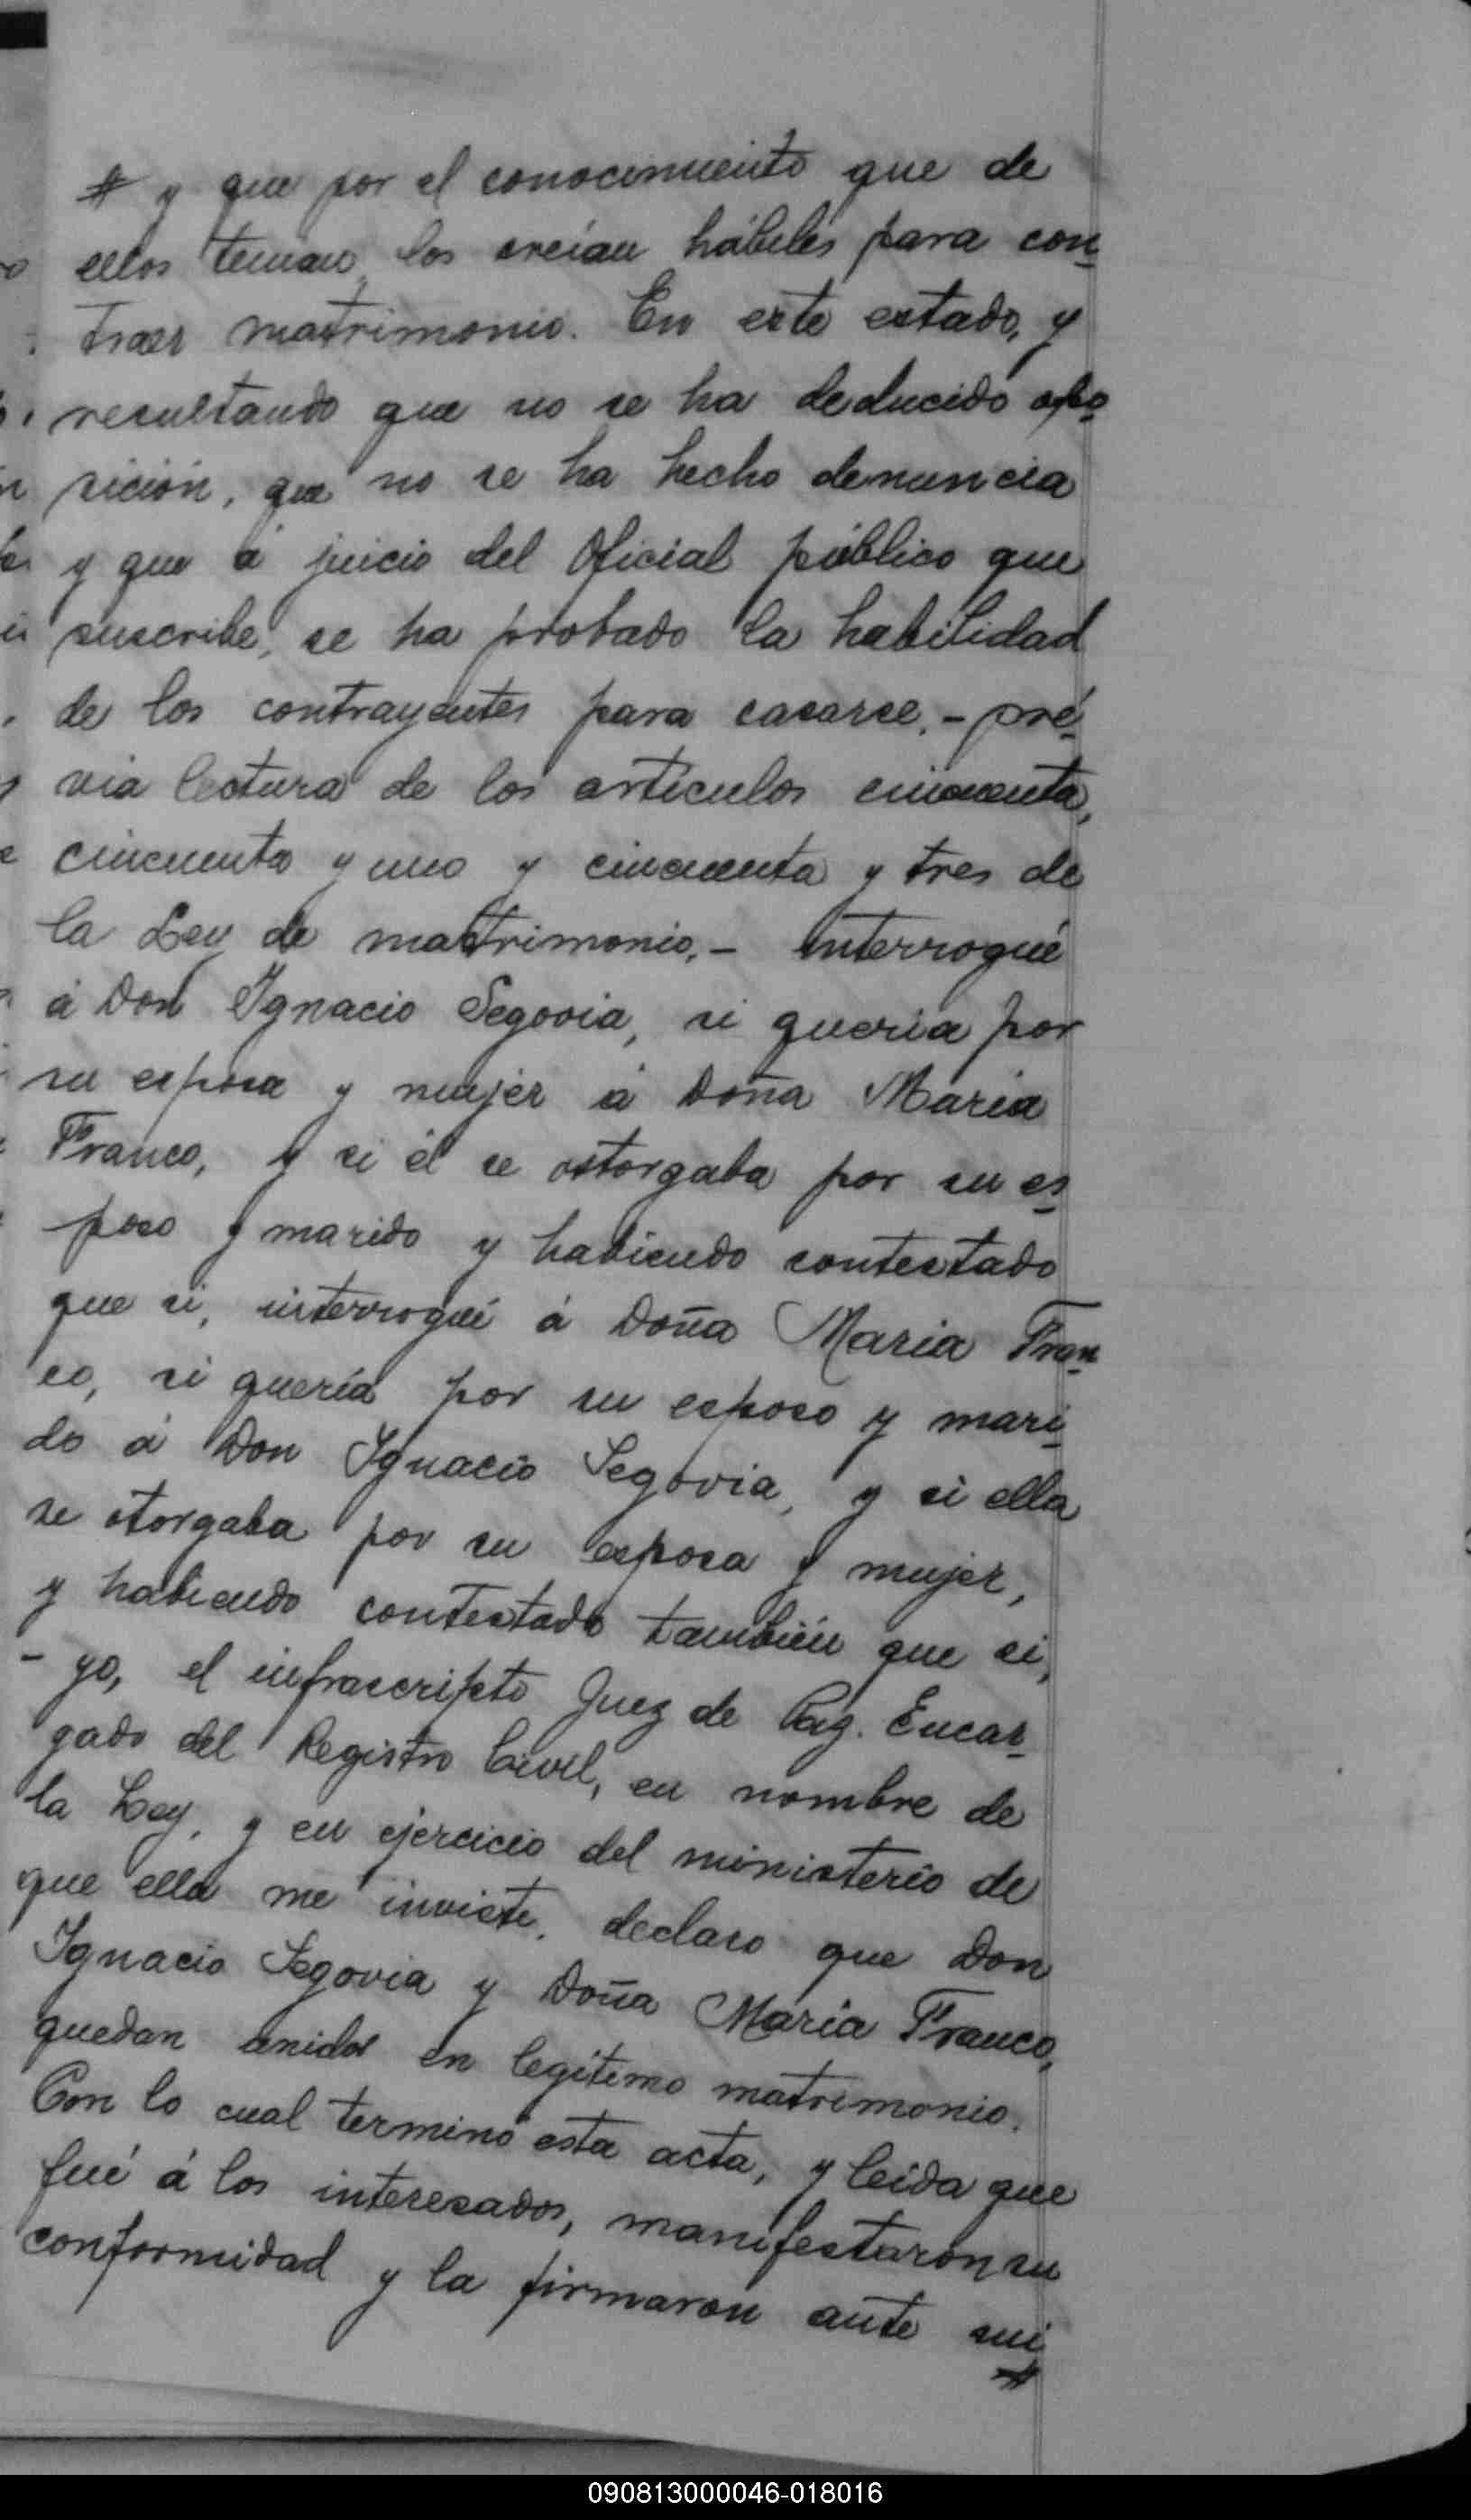 # y que por el conocimiento que de
ellos tenian, los creían hábiles para con-
traer matrimonio. En este estado, y
resultando que no se ha deducido opo-
sición, que no se ha hecho denuncia
y que á juicio del Oficial público que
suscribe, se ha probado la habilidad
de los contrayentes para casarse, - pré-
via lectura de los artículos cincuenta,
cincuenta y uno y cincuenta y tres de
la Ley de matrimonio, - interrogué
á Don Ignacio Segovia, si queria por
su esposa y mujer á Doña Maria
Franco, y si él se otorgaba por su es-
poso y marido y habiendo contestado
que si, interrogué á Doña Maria Fran-
co, si quería por su esposo y mari-
do á Don Ignacio Segovia, y si ella
se otorgaba por su esposa y mujer,
y habiendo contestado también que si,
- yo, el infrascripto Juez de Paz. Encar-
gado del Registro Civil, en nombre de
la Ley, y en ejercicio del ministerio de
que ella me inviste, declaro que Don
Ignacio Segovia y Doña Maria Franco,
quedan unidos en legítimo matrimonio.
Con lo cual terminó esta acta, y leída que
fué á los interesados, manifestaron su
conformidad y la firmaron ante mi
#
090813000046-018016